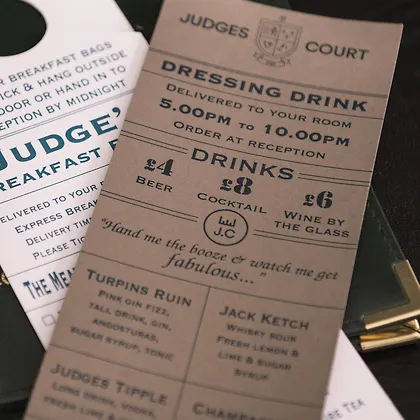 R BREAKFAST BAGS
ICK & HANG OUTSIDE
DOOR OR HAND IN TO
EPTION BY MIDNIGHT
JUDGE'
REAKFAST B
DELIVERED TO YOUR
EXPRESS BREAK
DELIVERY TIME
PLEASE TIC
THE MEA
JUDGES COURT
DRESSING DRINK
DELIVERED TO YOUR ROOM
5.00PM TO 10.00PM
ORDER AT RECEPTION
DRINKS
£4
BEER
£8
COCKTAIL
£6
WINE BY
THE GLASS
J.C
"Hand me the booze & watch me get
fabulous..."
TURPINS RUIN
PINK GIN FIZZ,
TALL DRINK, GIN,
ANGOSTURAS,
SUGAR SYRUP, TONIC
JACK KETCH
WHISKY SOUR
FRESH LEMON &
LIME & SUGAR
SYRUP
JUDGES TIPPLE
LONG DRINK, VODKA,
FRESH LIME &
CHAMPA
RE TEA